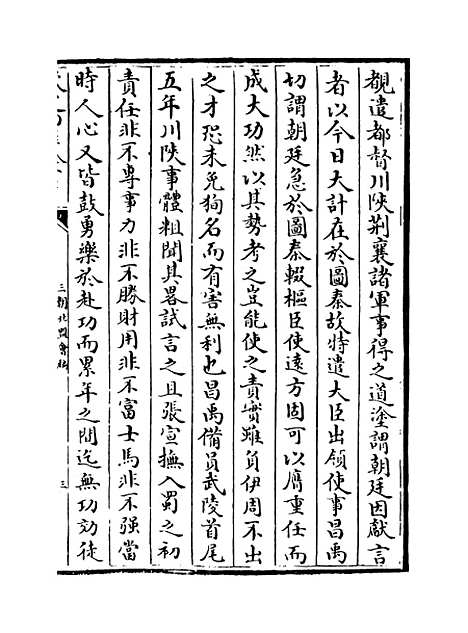 覩遣都督川陜荆襄諸軍事得之道塗謂朝廷因獻言
者以今日大計在於圖秦故特遣大臣出領使事昌禹
切謂朝廷急於圖秦輟樞臣使遠方固可以膺重任而
成大功然以其勢考之豈能使之責實雖負伊周不出
之才恐未免狥名而有害無利也昌禹備員武陵首尾
五年川陜事體粗聞其畧試言之且張宣撫入蜀之初
責任非不專事力非不勝財用非不富士馬非不强當
時人心又皆鼓勇樂於赴功而累年之間迄無功効徒
三朝北盟會編
三